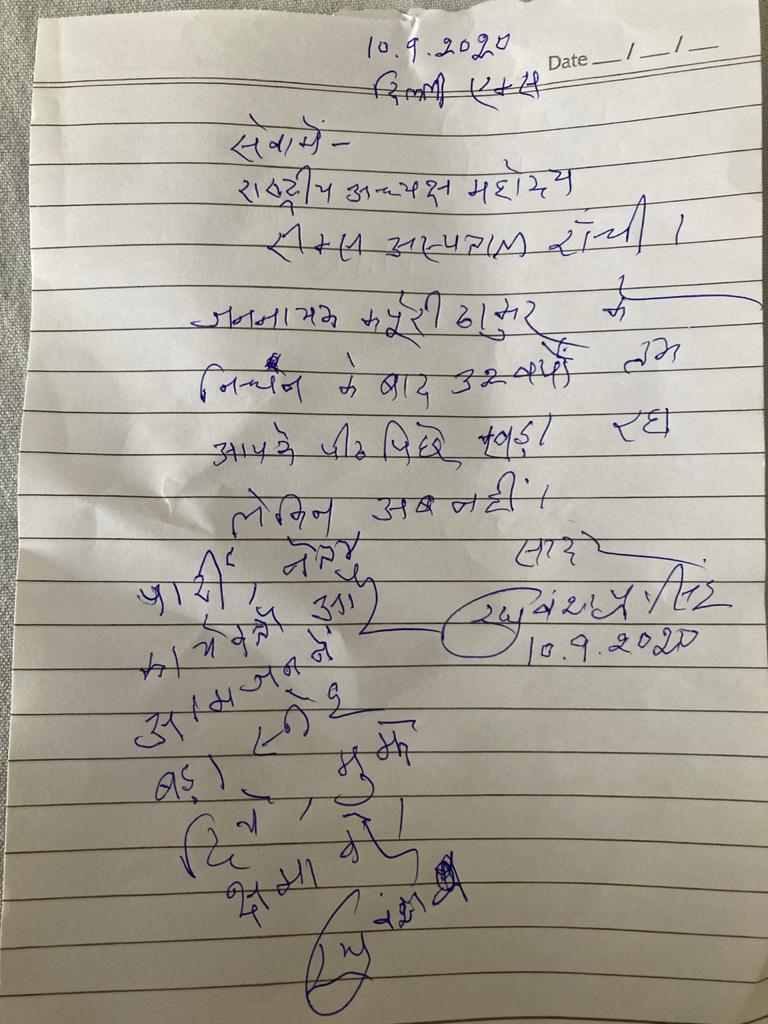 10.9.2020
Date __/__/__
दिल्ली एम्स
सेवामें-
राष्ट्रीय अध्यक्ष महोदय
रीम्स अस्पताल राँची।
जननायक कर्पूरी ठाकुर के
निधन के बाद 32 वर्षों तक
आपके पीठ पिछे खड़ा रहा
लेकिन अब नहीं।
सादर
रघुवंश प्रसाद सिंह
10.9.2020
पार्टी, नेता
कार्यकर्ता और
आमजन ने
बड़ा स्नेह
दिया, मुझे
क्षमा करें।
रघुवंश